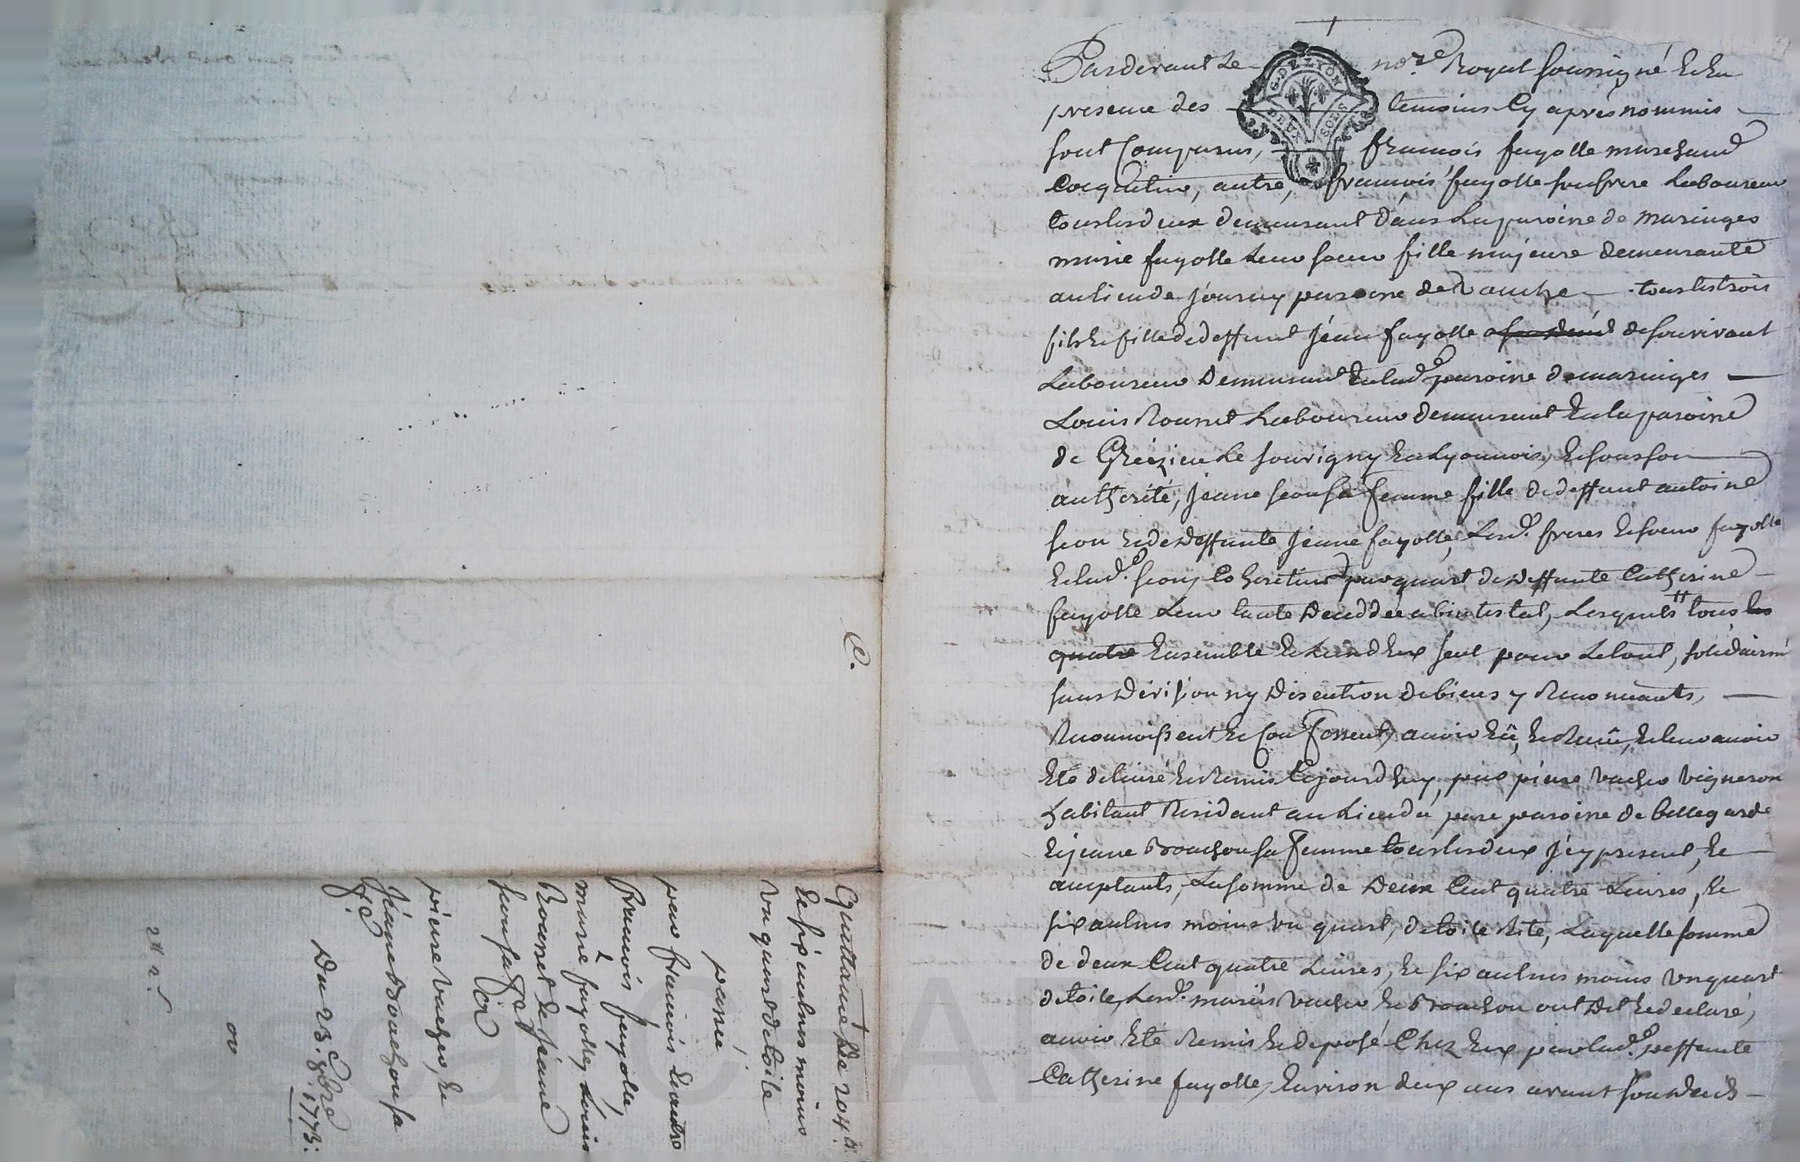 Pardevant Le no.re Royal soussigné & En
G. DE LYON
DEUX SOLS
presence des temoins Cy après nommés
sont Comparus, françois fayolle marchand
Coquetier, autre, françois fayolle son frere Laboureur
tous les deux demeurant dans La paroisse de maringes
marie fayolle Leur soeur fille majeure demeurante
au lieu de journy paroisse de tous les trois
fils & fille de deffunt Jean fayolle de son vivant
Laboureur Demeurant En lad.e paroisse de maringes
Louis Rousset Laboureur demeurant En la paroisse
de Grézieu Le souvigny En Lyonnois, & sous son
authorité, Jeane seon sa femme fille de deffunt antoine
seon & de deffunte Jeane fayolle, Lesd. freres & soeur fayolle
& lad.e seon, Coheretiers par quart de deffunte Catherine
fayolle Leur tante Décédée abintestat, Lesquels tous les
quatre Ensemble & L'un d'Eux seul pour Le tout, solidairem.t
sans Division ny Discution de biens y Renonceants,
Reconnoissent & Confessent avoir Eü, & Reçeü, & leur avoir
Eté délivré & Remis Cejourd'huy, par pierre vacher vigneron
habitant Residant au Lieu du paroisse de bellegarde
& jeane Brachon sa Femme tous les deux jcy present, &
acceptants, La somme de Deux Cent quatre Livres, &
six aulnes moins un quart, de toile Rite, Laquelle somme
de deux Cent quatre Livres, & six aulnes moins un quart
de toile, Lesd. mariés vacher & Brachon ont Dit & declaré,
avoir Eté Remis & deposé Chez Eux par lad.e deffunte
Catherine fayolle, Environ deux ans avant son Décés
C.
Quittance De 204.lt
& six aulnes moins
un quart de toile
passée
par françois & autre
françois fayolle,
marie fayolle, Louis
Rousset & Jeane
seon sa f.e
à
pierre vacher, &
Jeane Brachon sa
f.e
Du 23. 8bre 1773.